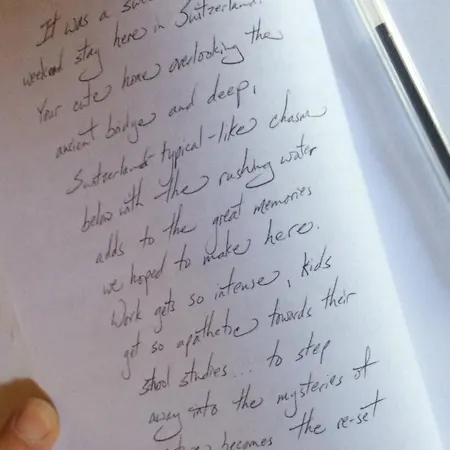 It was a
weekend stay here in Switzerland.
Your cute home overlooking the
ancient bridge and deep,
Switzerland-typical-like chasm
below with the rushing water
adds to the great memories
we hoped to make here.
Work gets so intense, kids
get so apathetic towards their
school studies... to step
away into the mysteries of
becomes the re-set